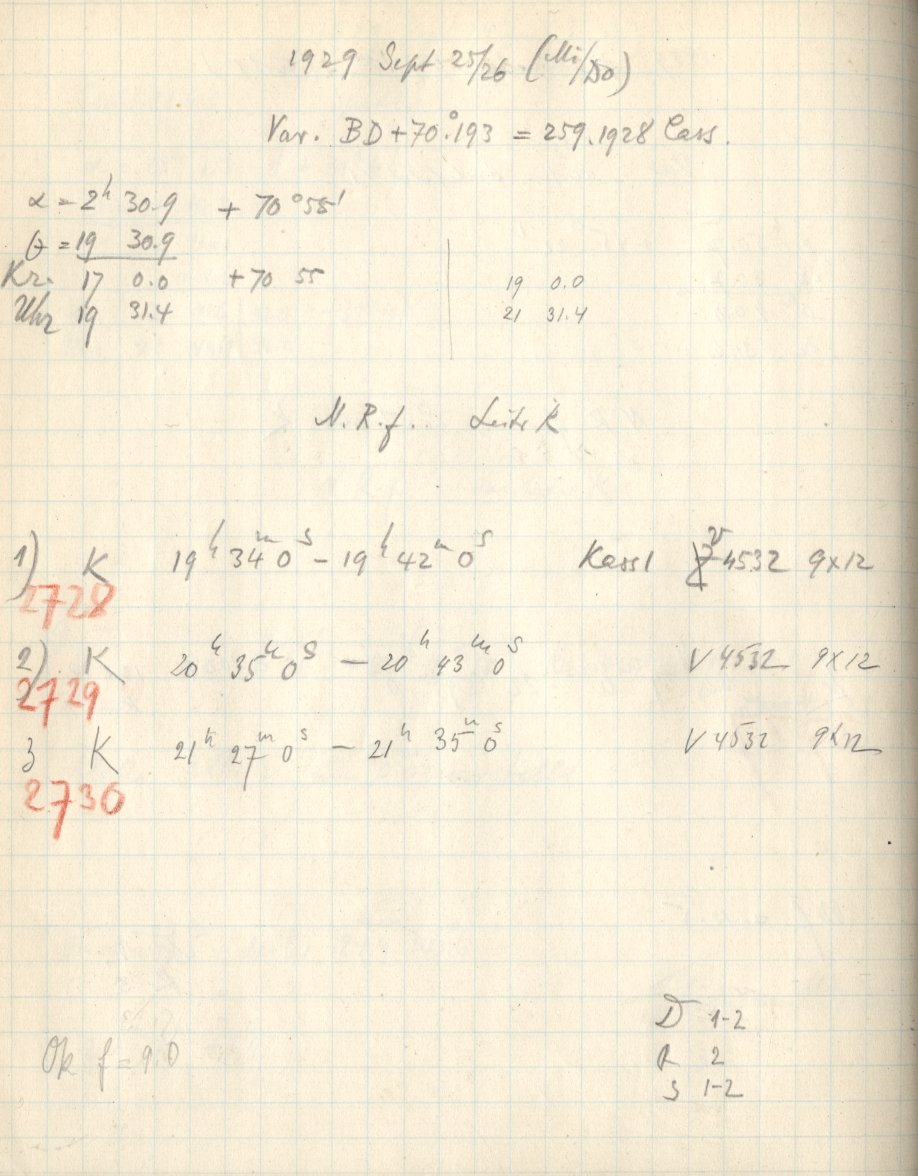 1929 Sept 25/26 (Mi/Do)
Var. BD+70°.193 = 259.1928 Cass.
α = 2h 30.9 + 70°55'
θ = 19 30.9
Kr. 17 0.0 +70 55
Uhr 19 31.4
19 0.0
21 31.4
N.R.f. Leitr K
1) K 19h 34m 0s – 19h 42m 0s Kass1 V 4532 9x12
2728
2) K 20h 35m 0s – 20h 43m 0s V 4532 9x12
2729
3 K 21h 27m 0s – 21h 35m 0s V 4532 9x12
2730
D 1-2
R 2
S 1-2
Ok f = 9.0